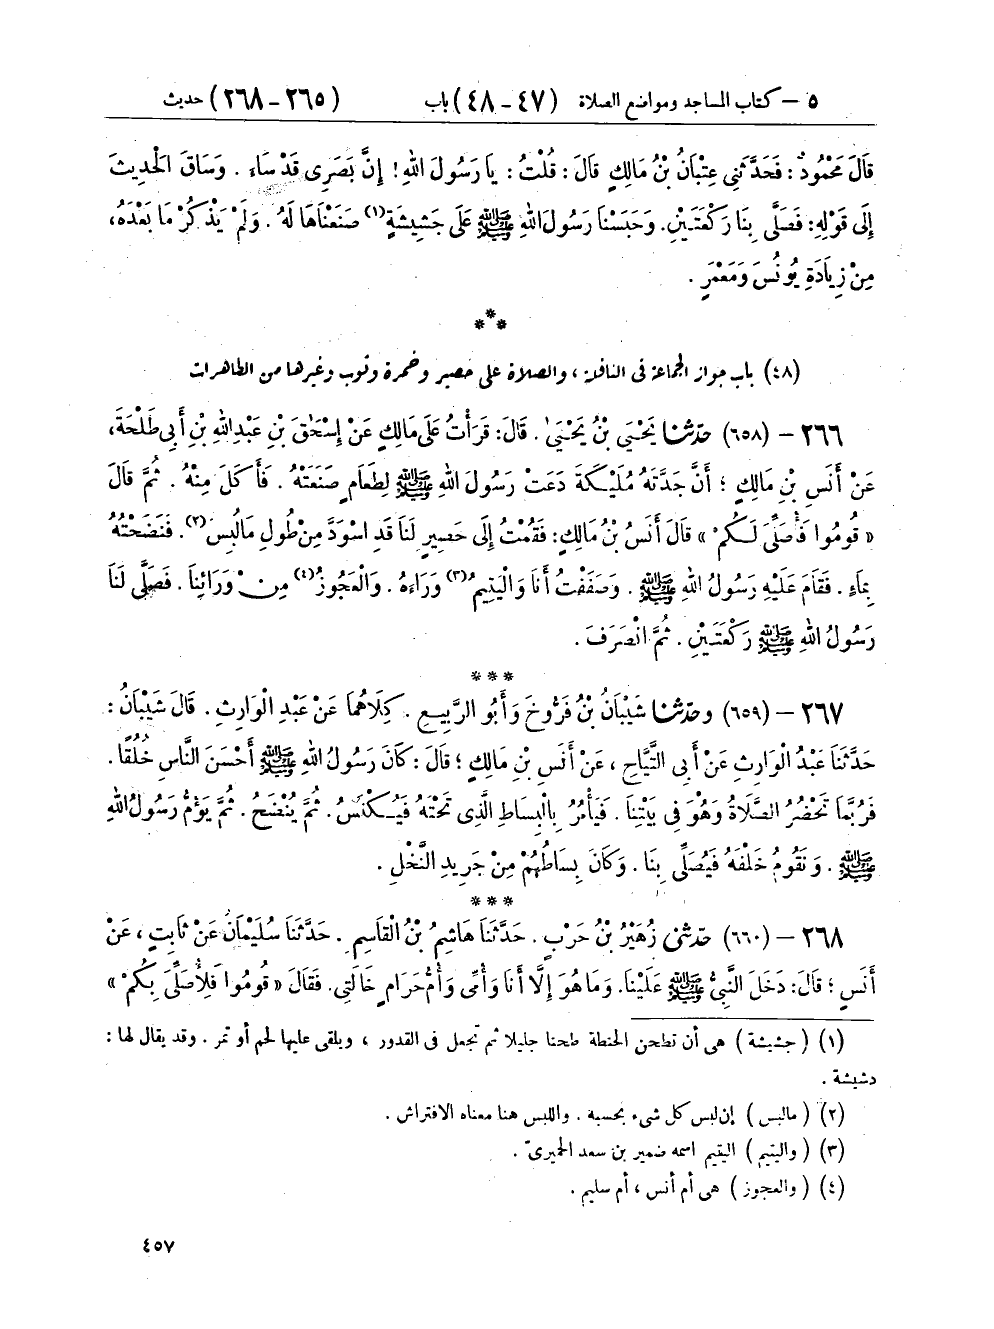 ٥ – كتاب المساجد ومواضع الصلاة (٤٧ – ٤٨) باب (٢٦٥ – ٢٦٨) حديث
قَالَ مَحْمُودٌ : فَحَدَّثَنِي عِتْبَانُ بْنُ مَالِكٍ قَالَ : قُلْتُ : يَا رَسُولَ اللهِ! إِنَّ بَصَرِى قَدْ سَاءَ . وَسَاقَ الْحَدِيثَ
إِلَى قَوْلِهِ: فَصَلَّى بِنَا رَكْعَتَيْنِ. وَحَبَسْنَا رَسُولَ اللهِ ﷺ عَلَى جَشِيشَةٍ(١) صَنَعْنَاهَا لَهُ . وَلَمْ يَذْكُرْ مَا بَعْدَهُ،
مِنْ زِيَادَةِ يُونُسَ وَمَعْمَرٍ .
***
(٤٨) باب جواز الجماعة فى النافلة ، والصلاة على حصير وخمرة وثوب وغيرها من الطاهرات
٢٦٦ – (٦٥٨) حَدَّثَنَا يَحْيَى بْنُ يَحْيَى . قَالَ: قَرَأْتُ عَلَى مَالِكٍ عَنْ إِسْحَٰقَ بْنِ عَبْدِ اللهِ بْنِ أَبِى طَلْحَةَ،
عَنْ أَنَسِ بْنِ مَالِكٍ ؛ أَنَّ جَدَّتَهُ مُلَيْكَةَ دَعَتْ رَسُولَ اللهِ ﷺ لِطَعَامٍ صَنَعَتْهُ . فَأَكَلَ مِنْهُ . ثُمَّ قَالَ
« قُومُوا فَأُصَلِّىَ لَكُمْ » قَالَ أَنَسُ بْنُ مَالِكٍ: فَقُمْتُ إِلَى حَصِيرٍ لَنَا قَدِ اسْوَدَّ مِنْ طُولِ مَا لُبِسَ(٢). فَنَضَحْتُهُ
بِمَاءٍ . فَقَامَ عَلَيْهِ رَسُولُ اللهِ ﷺ . وَصَفَفْتُ أَنَا وَالْيَتِيمُ(٣) وَرَاءَهُ . وَالْعَجُوزُ(٤) مِنْ وَرَائِنَا . فَصَلَّى لَنَا
رَسُولُ اللهِ ﷺ رَكْعَتَيْنِ . ثُمَّ انْصَرَفَ .
***
٢٦٧ – (٦٥٩) وحَدَّثَنَا شَيْبَانُ بْنُ فَرُّوخَ وَأَبُو الرَّبِيعِ . كِلَاهُمَا عَنْ عَبْدِ الْوَارِثِ . قَالَ شَيْبَانُ :
حَدَّثَنَا عَبْدُ الْوَارِثِ عَنْ أَبِى التَّيَّاحِ ، عَنْ أَنَسِ بْنِ مَالِكٍ ؛ قَالَ : كَانَ رَسُولُ اللهِ ﷺ أَحْسَنَ النَّاسِ خُلُقًا .
فَرُبَّمَا تَحْضُرُ الصَّلَاةُ وَهُوَ فِى بَيْتِنَا . فَيَأْمُرُ بِالْبِسَاطِ الَّذِى تَحْتَهُ فَيُكْنَسُ . ثُمَّ يُنْضَحُ . ثُمَّ يَؤُمُّ رَسُولُ اللهِ
ﷺ . وَنَقُومُ خَلْفَهُ فَيُصَلِّى بِنَا . وَكَانَ بِسَاطُهُمْ مِنْ جَرِيدِ النَّخْلِ .
***
٢٦٨ – (٦٦٠) حَدَّثَنِى زُهَيْرُ بْنُ حَرْبٍ . حَدَّثَنَا هَاشِمُ بْنُ الْقَاسِمِ . حَدَّثَنَا سُلَيْمَانُ عَنْ ثَابِتٍ ، عَنْ
أَنَسٍ ؛ قَالَ: دَخَلَ النَّبِىُّ ﷺ عَلَيْنَا. وَمَا هُوَ إِلَّا أَنَا وَأُمِّى وَأُمُّ حَرَامٍ خَالَتِى. فَقَالَ « قُومُوا فَلِأُصَلِّىَ بِكُمْ »
(١) ( جشيشة ) هى أن تطحن الحنطة طحنا جليلا ثم تجعل فى القدور ، ويلقى عليها لحم أو تمر . وقد يقال لها :
دشيشة .
(٢) ( مالبس ) إن لبس كل شىء بحسبه . واللبس هنا معناه الافتراش .
(٣) ( واليتيم ) اليتيم اسمه ضمير بن سعد الحميرىّ .
(٤) ( والعجوز ) هى أم أنس ، أم سليم .
٤٥٧